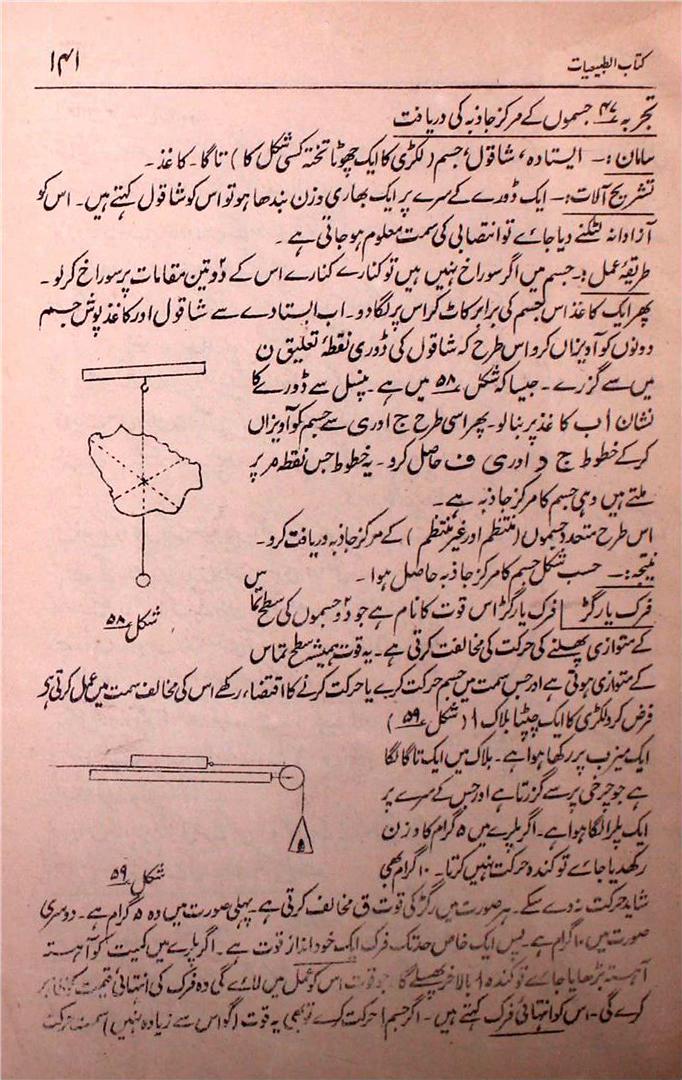 کتاب الطبیعیات
۱۴۱
تجربہ ۴۷ جسموں کے مرکز جاذبہ کی دریافت
سامان:۔ ایستادہ، شاقول، جسم (لکڑی کا ایک چھوٹا تختہ کسی شکل کا) تاگا۔ کاغذ۔
تشریح آلات:۔ ایک ڈورے کے سرے پر ایک بھاری وزن بندھا ہو تو اس کو شاقول کہتے ہیں۔ اس کو
آزادانہ لٹکنے دیا جائے تو انتصابی کی سمت معلوم ہو جاتی ہے۔
طریقۂ عمل:۔ جسم میں اگر سوراخ نہیں ہیں تو کنارے کنارے اس کے دو تین مقامات پر سوراخ کر لو۔
پھر ایک کاغذ اس جسم کی برابر کاٹ کر اس پر لگا دو۔ اب ایستادے سے شاقول اور کاغذ پوش جسم
دونوں کو آویزاں کرو اس طرح کہ شاقول کی ڈوری نقطۂ تعلیق ن
میں سے گزرے۔ جیسا کہ شکل ۵۸ میں ہے۔ پنسل سے ڈورے کا
نشان ا ب کاغذ پر بنا لو۔ پھر اسی طرح ج اور ی سے جسم کو آویزاں
کر کے خطوط ج د اور ی ف حاصل کرو۔ یہ خطوط جس نقطہ مر پر
ملتے ہیں وہی جسم کا مرکز جاذبہ ہے۔
اس طرح متعدد جسموں (منتظم اور غیر منتظم) کے مرکز جاذبہ دریافت کرو۔
نتیجہ:۔ حسب شکل جسم کا مرکز جاذبہ حاصل ہوا۔
شکل ۵۸
فرک یا رگڑ | فرک یا رگڑ اس قوت کا نام ہے جو دو جسموں کی سطح تماس
کے متوازی پھسلنے کی حرکت کی مخالفت کرتی ہے۔ یہ قوت ہمیشہ سطح تماس
کے متوازی ہوتی ہے اور جس سمت میں جسم حرکت کرے یا حرکت کرنے کا اقتضاء رکھے اس کی مخالف سمت میں عمل کرتی ہے
فرض کرو لکڑی کا ایک چپٹا بلاک ا (شکل ۵۹)
ایک میز ب پر رکھا ہوا ہے۔ بلاک میں ایک تاگا لگا
ہے جو چرخی پر سے گزرتا ہے اور جس کے سرے پر
ایک پلڑا لگا ہوا ہے۔ اگر پلڑے میں ۵ گرام کا وزن
رکھ دیا جائے تو کندہ حرکت نہیں کرتا۔ ۱۰ گرام بھی
شکل ۵۹
شاید حرکت نہ دے سکے۔ ہر صورت میں رگڑ کی قوت ق مخالفت کرتی ہے۔ پہلی صورت میں وہ ۵ گرام ہے۔ دوسری
صورت میں ۱۰ گرام ہے۔ پس ایک خاص حد تک فرک ایک خود انداز قوت ہے۔ اگر پلڑے میں کمیت کو آہستہ
آہستہ بڑھایا جائے تو کندہ ا بالآخر پھسلے گا۔ جو قوت اس کو عمل میں لائے گی وہ فرک کی انتہائی قیمت کو زیر
کرے گی۔ اس کو انتہائی فرک کہتے ہیں۔ اگر جسم ا حرکت کرے تو بھی یہ قوت (گو اس سے زیادہ نہیں) سمت حرکت